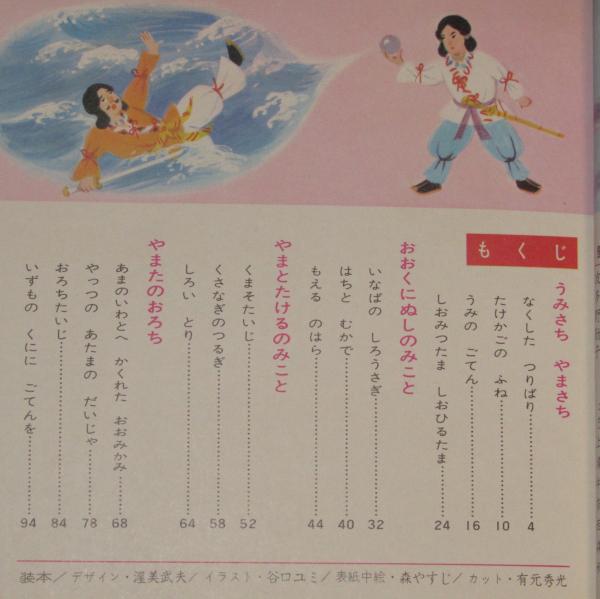 もくじ
うみさち やまさち
なくした つりばり……4
たけかごの ふね……10
うみの ごてん……16
しおみつたま しおひるたま……24
おおくにぬしのみこと
いなばの しろうさぎ……32
はちと むかで……40
もえる のはら……44
やまとたけるのみこと
くまそたいじ……52
くさなぎのつるぎ……58
しろい とり……64
やまたのおろち
あまのいわとへ かくれた おおみかみ……68
やっつの あたまの だいじゃ……78
おろちたいじ……84
いずもの くにに ごてんを……94
装本/デザイン・渥美武夫/イラスト・谷口ユミ/表紙中絵・森やすじ/カット・有元秀光